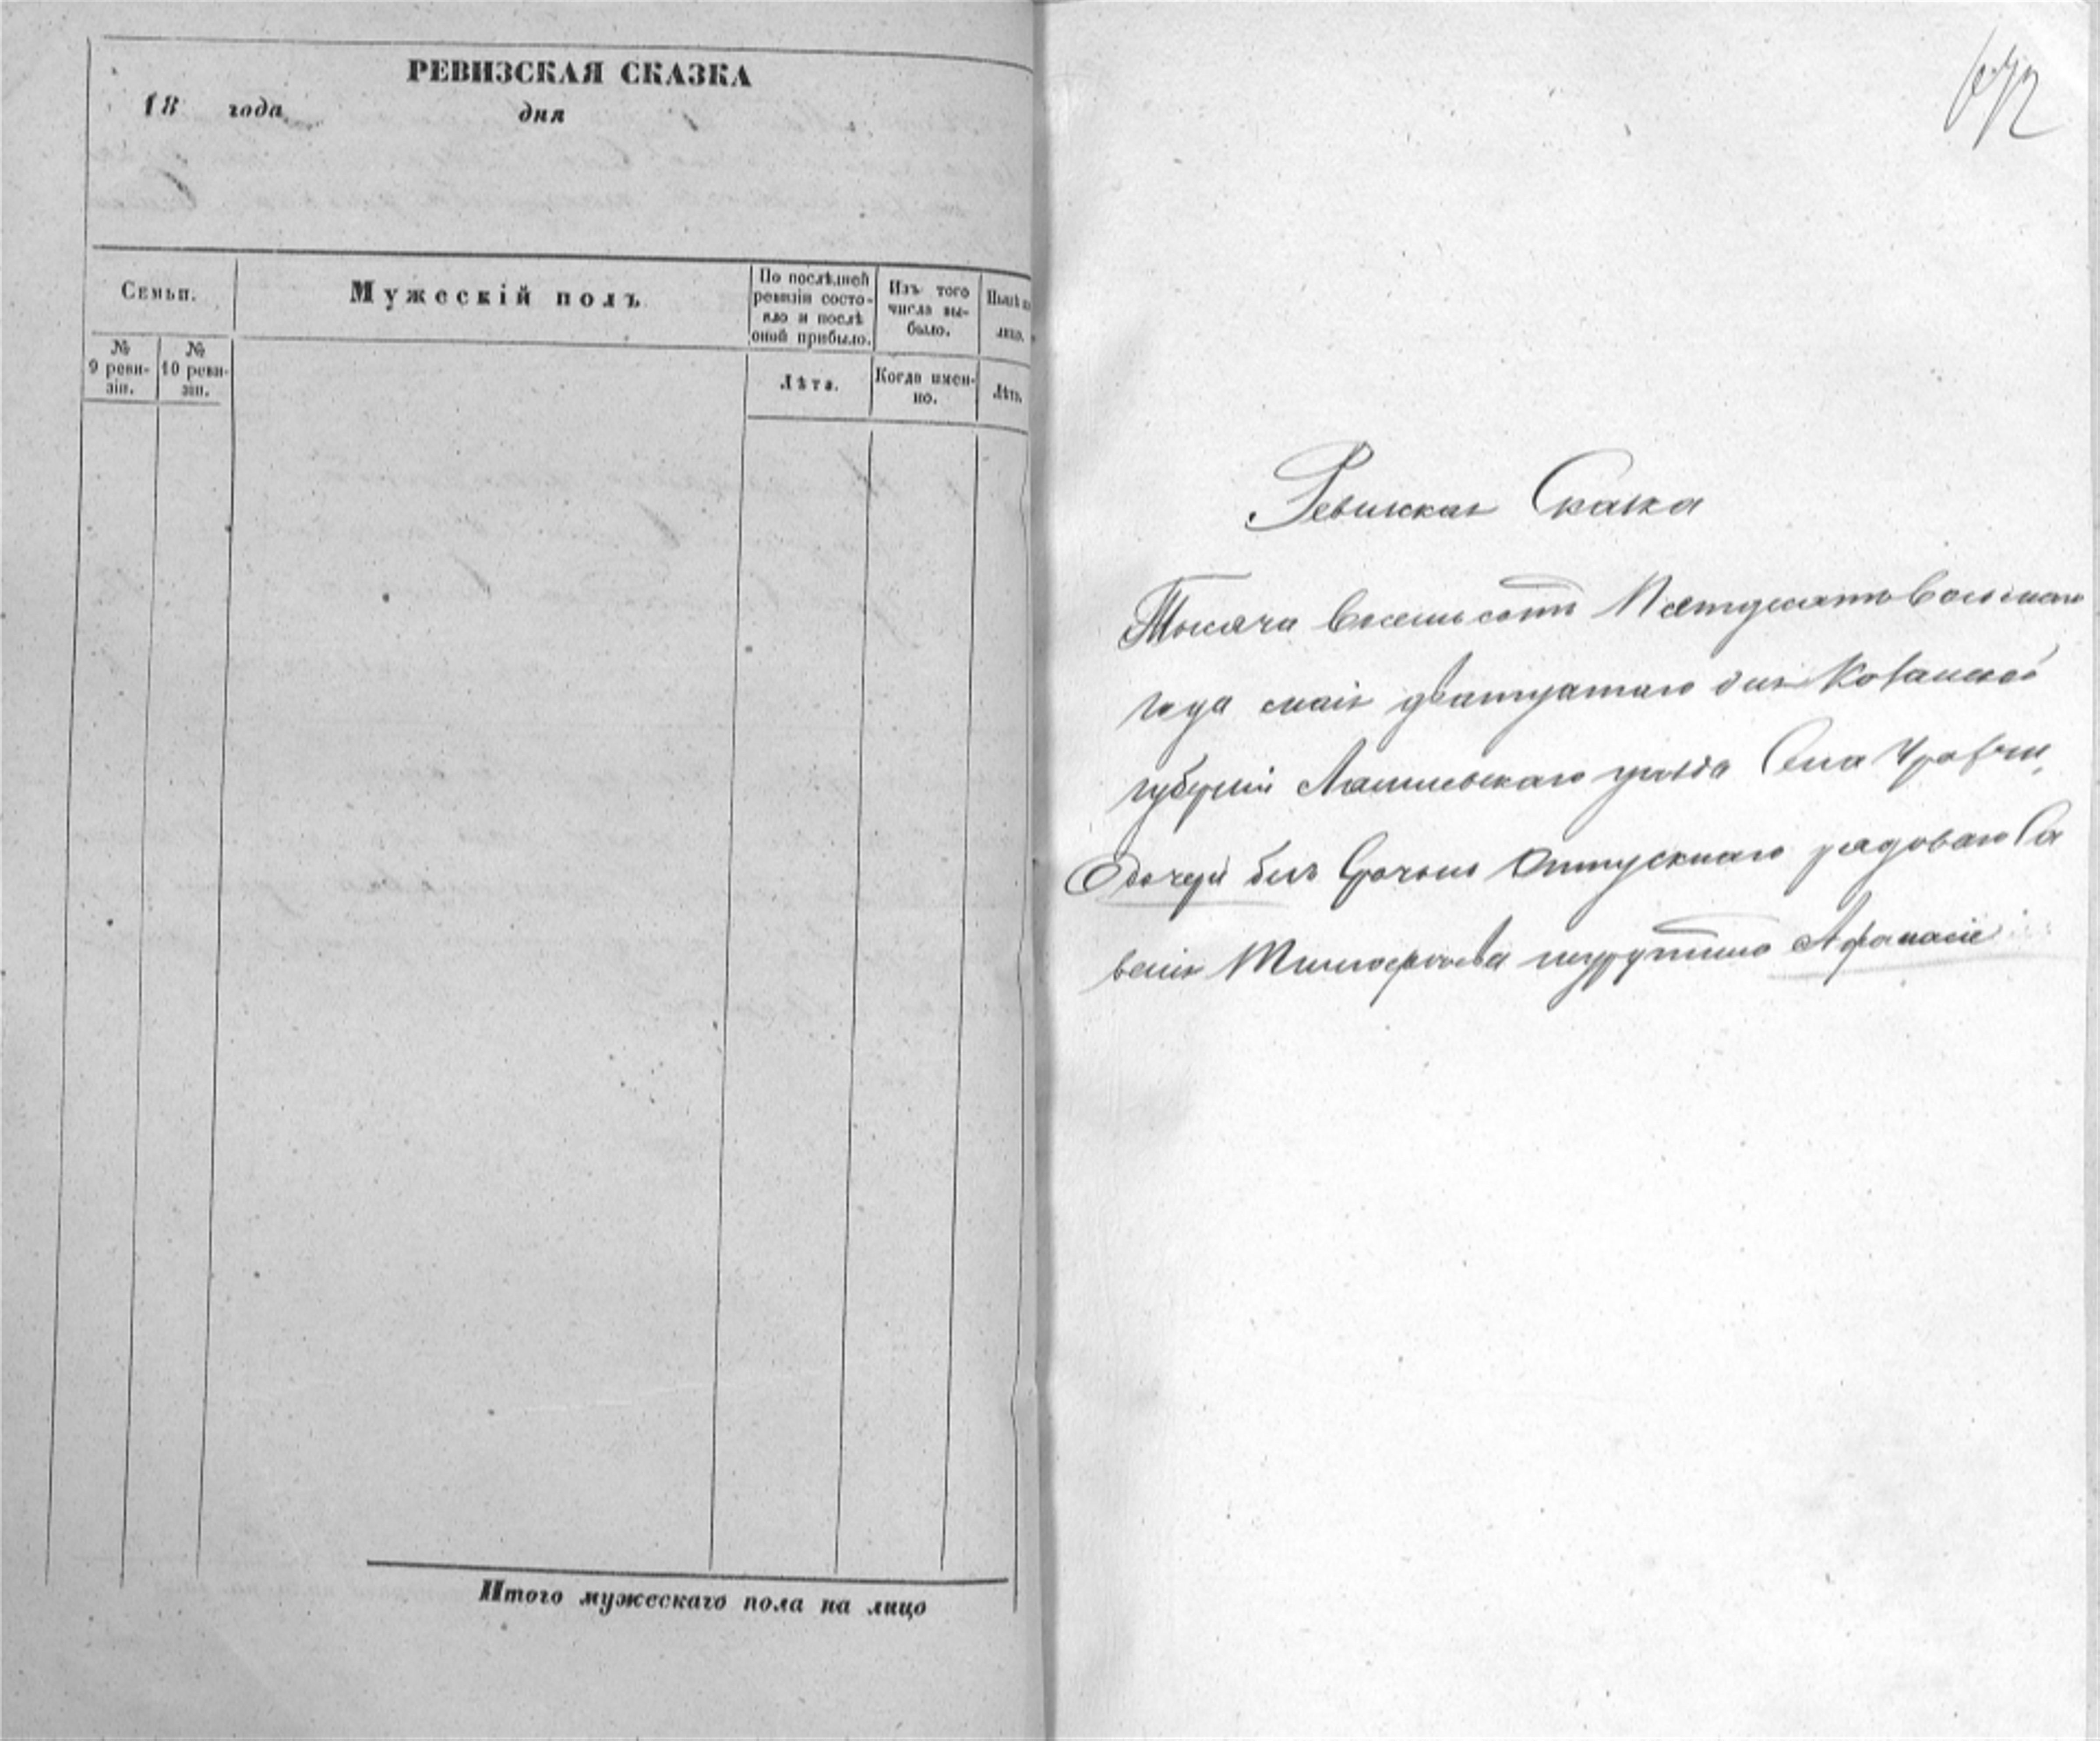 РЕВИЗСКАЯ СКАЗКА
18 года дня
Семьи.
Мужескій полъ
По послѣдней
ревизіи состо-
яло и послѣ
оной прибыло.
Изъ того
числа вы-
было.
Нынѣ на
лицо.
№
9 реви-
зіи.
№
10 реви-
зіи.
Лѣта.
Когда имен-
но.
Лѣта.
Итого мужескаго пола на лицо
672
Ревизская Сказка
Тысяча восемьсотъ Пятдесятъ восьмаго
года маія дватцатаго дня Казанской
губерніи Лаишевскаго уѣзда Села
О дочери безъ Срочно Отпускнаго рядоваго Са
велія Тимофеева Афанасіе